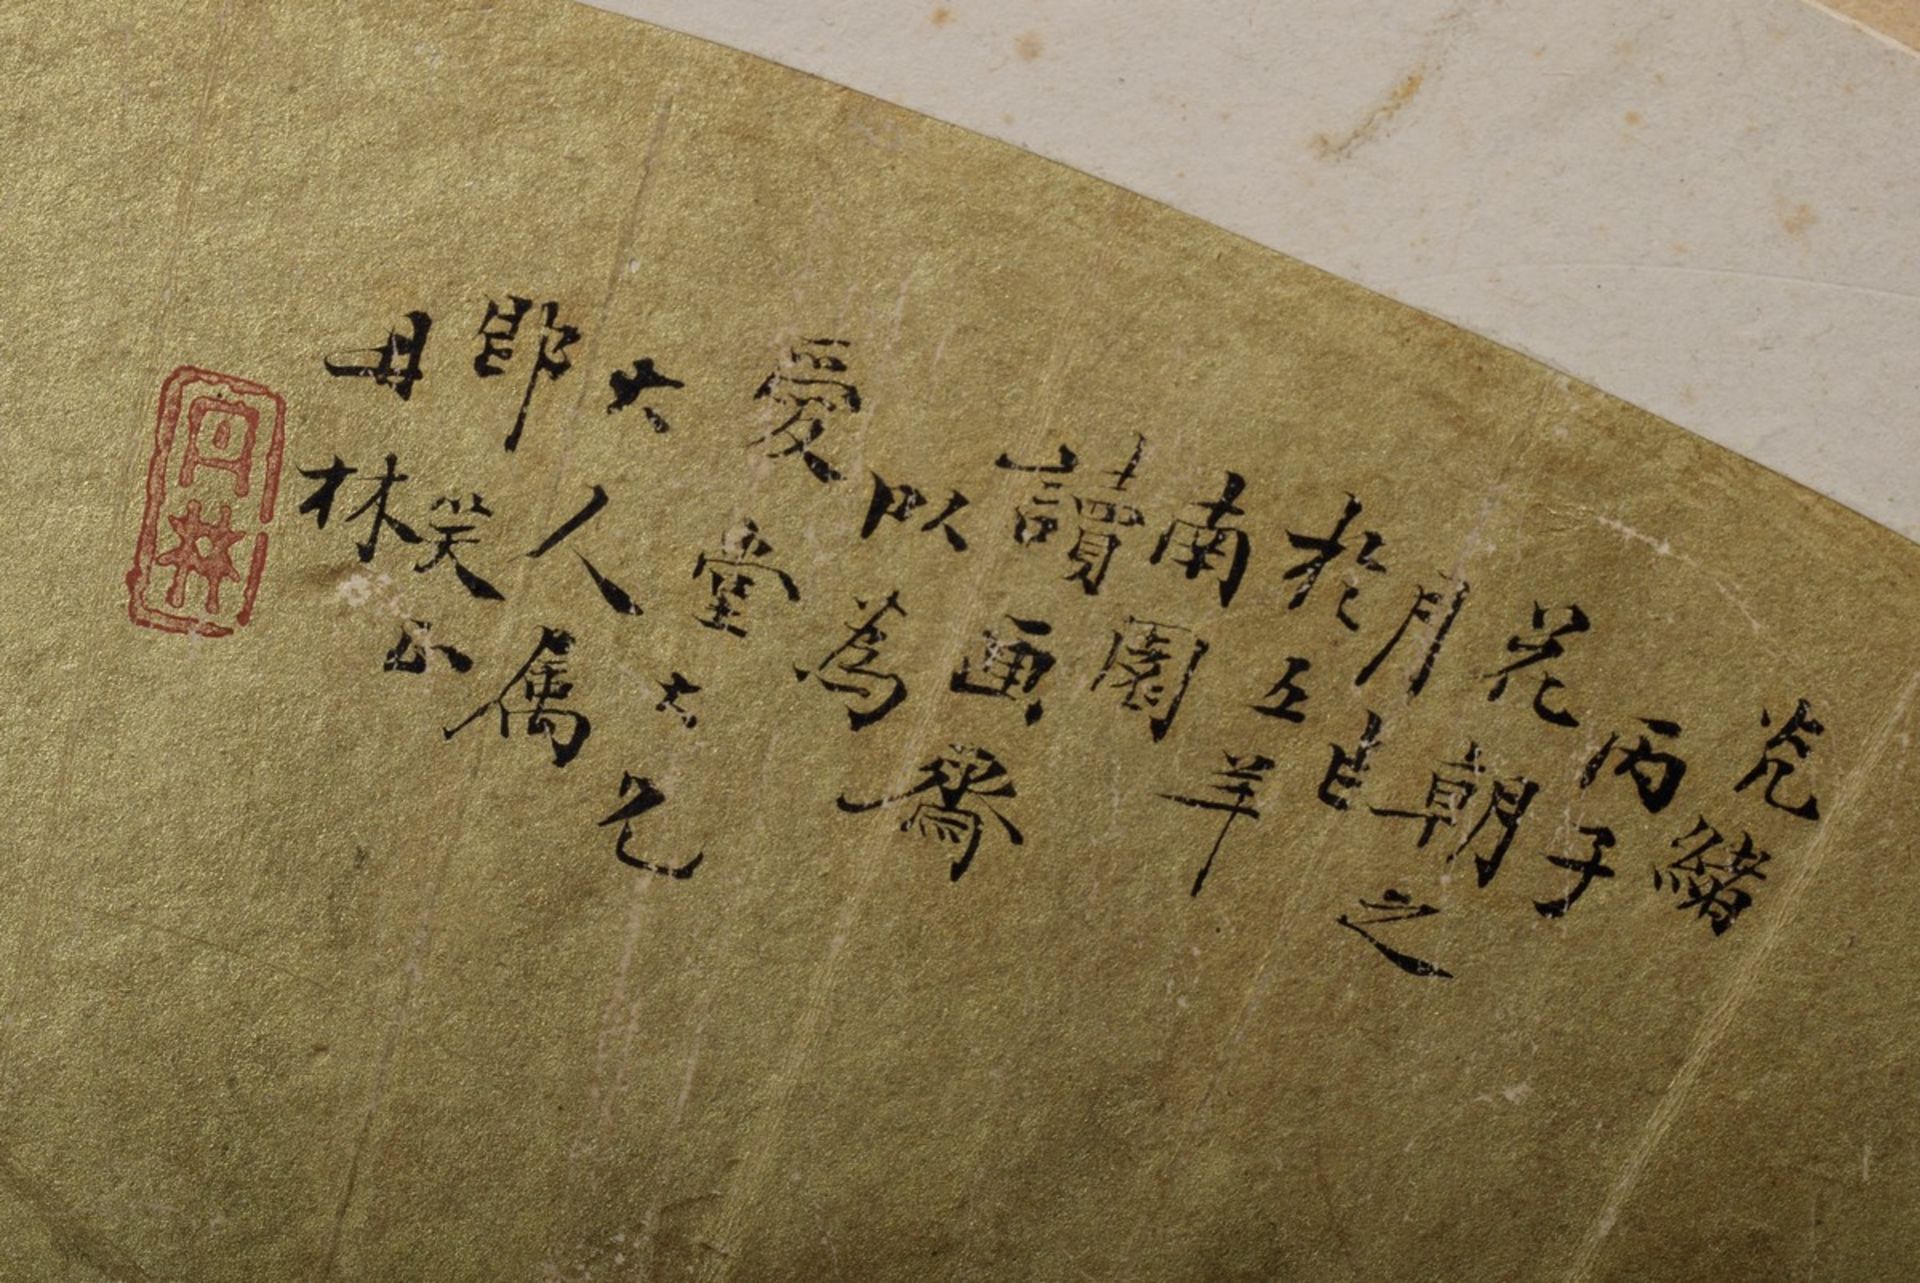 光緒
丙子
花朝之
月
於上羊
南園
讀画齋
以為
愛堂大兄
大人属
即笑正
丹林
丹林